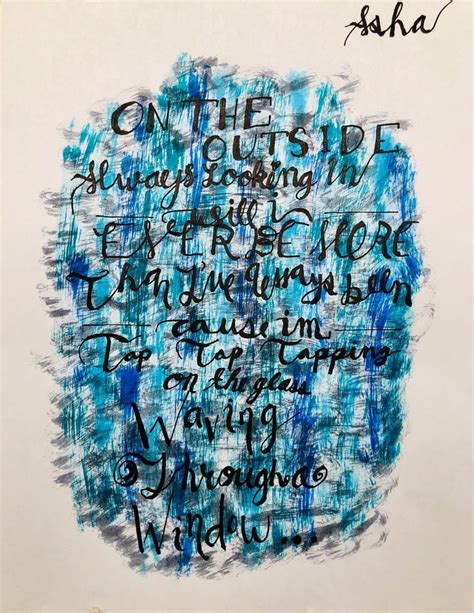 Asha
ON THE
OUTSIDE
Always looking in
will i
EVER BE MORE
Than I've always been
cause im
Tap Tap Tapping
on the glass
Waving
Through a
Window...